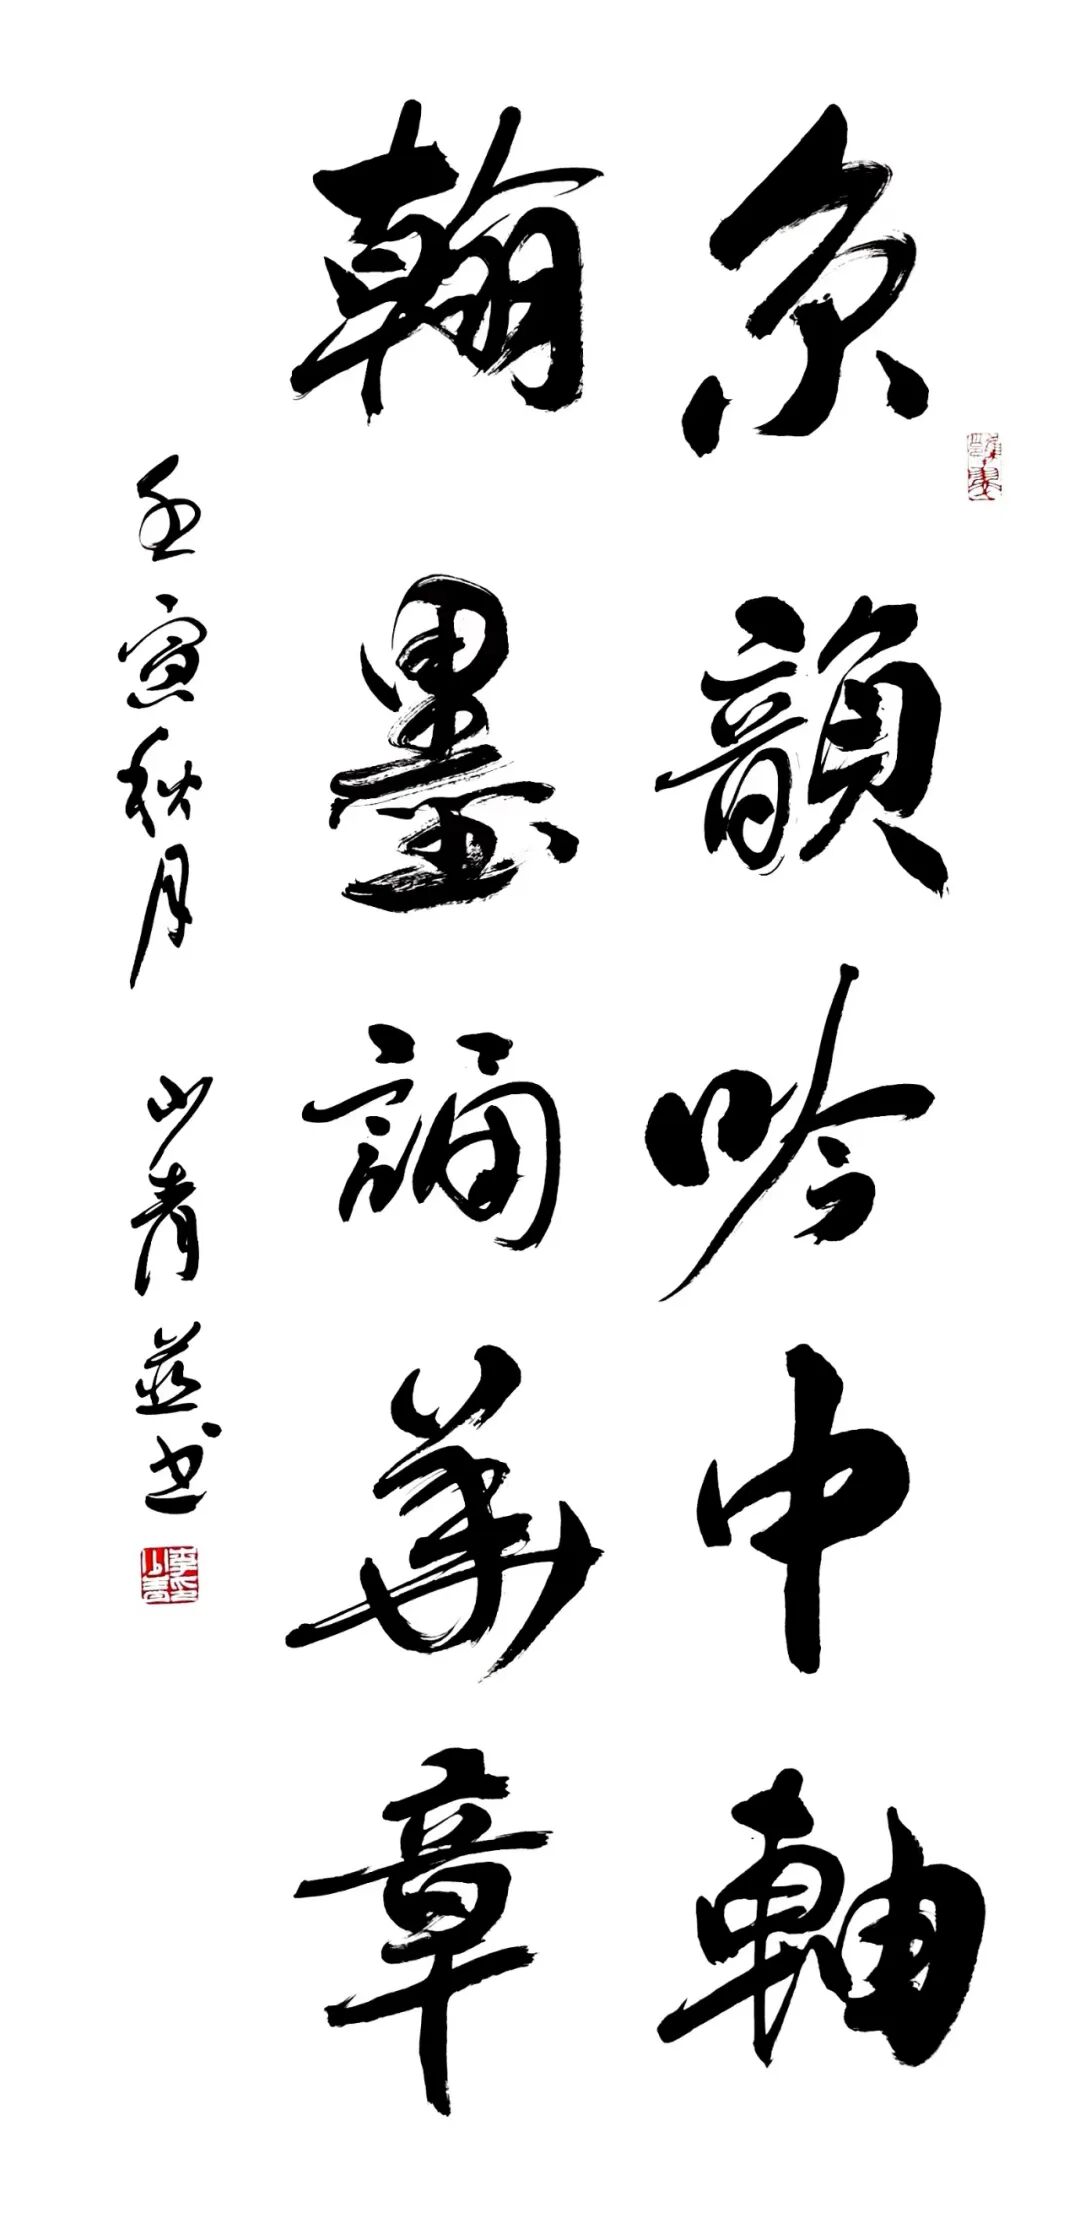 京韻吟中軸
翰墨誦華章
壬寅秋月 山青並书